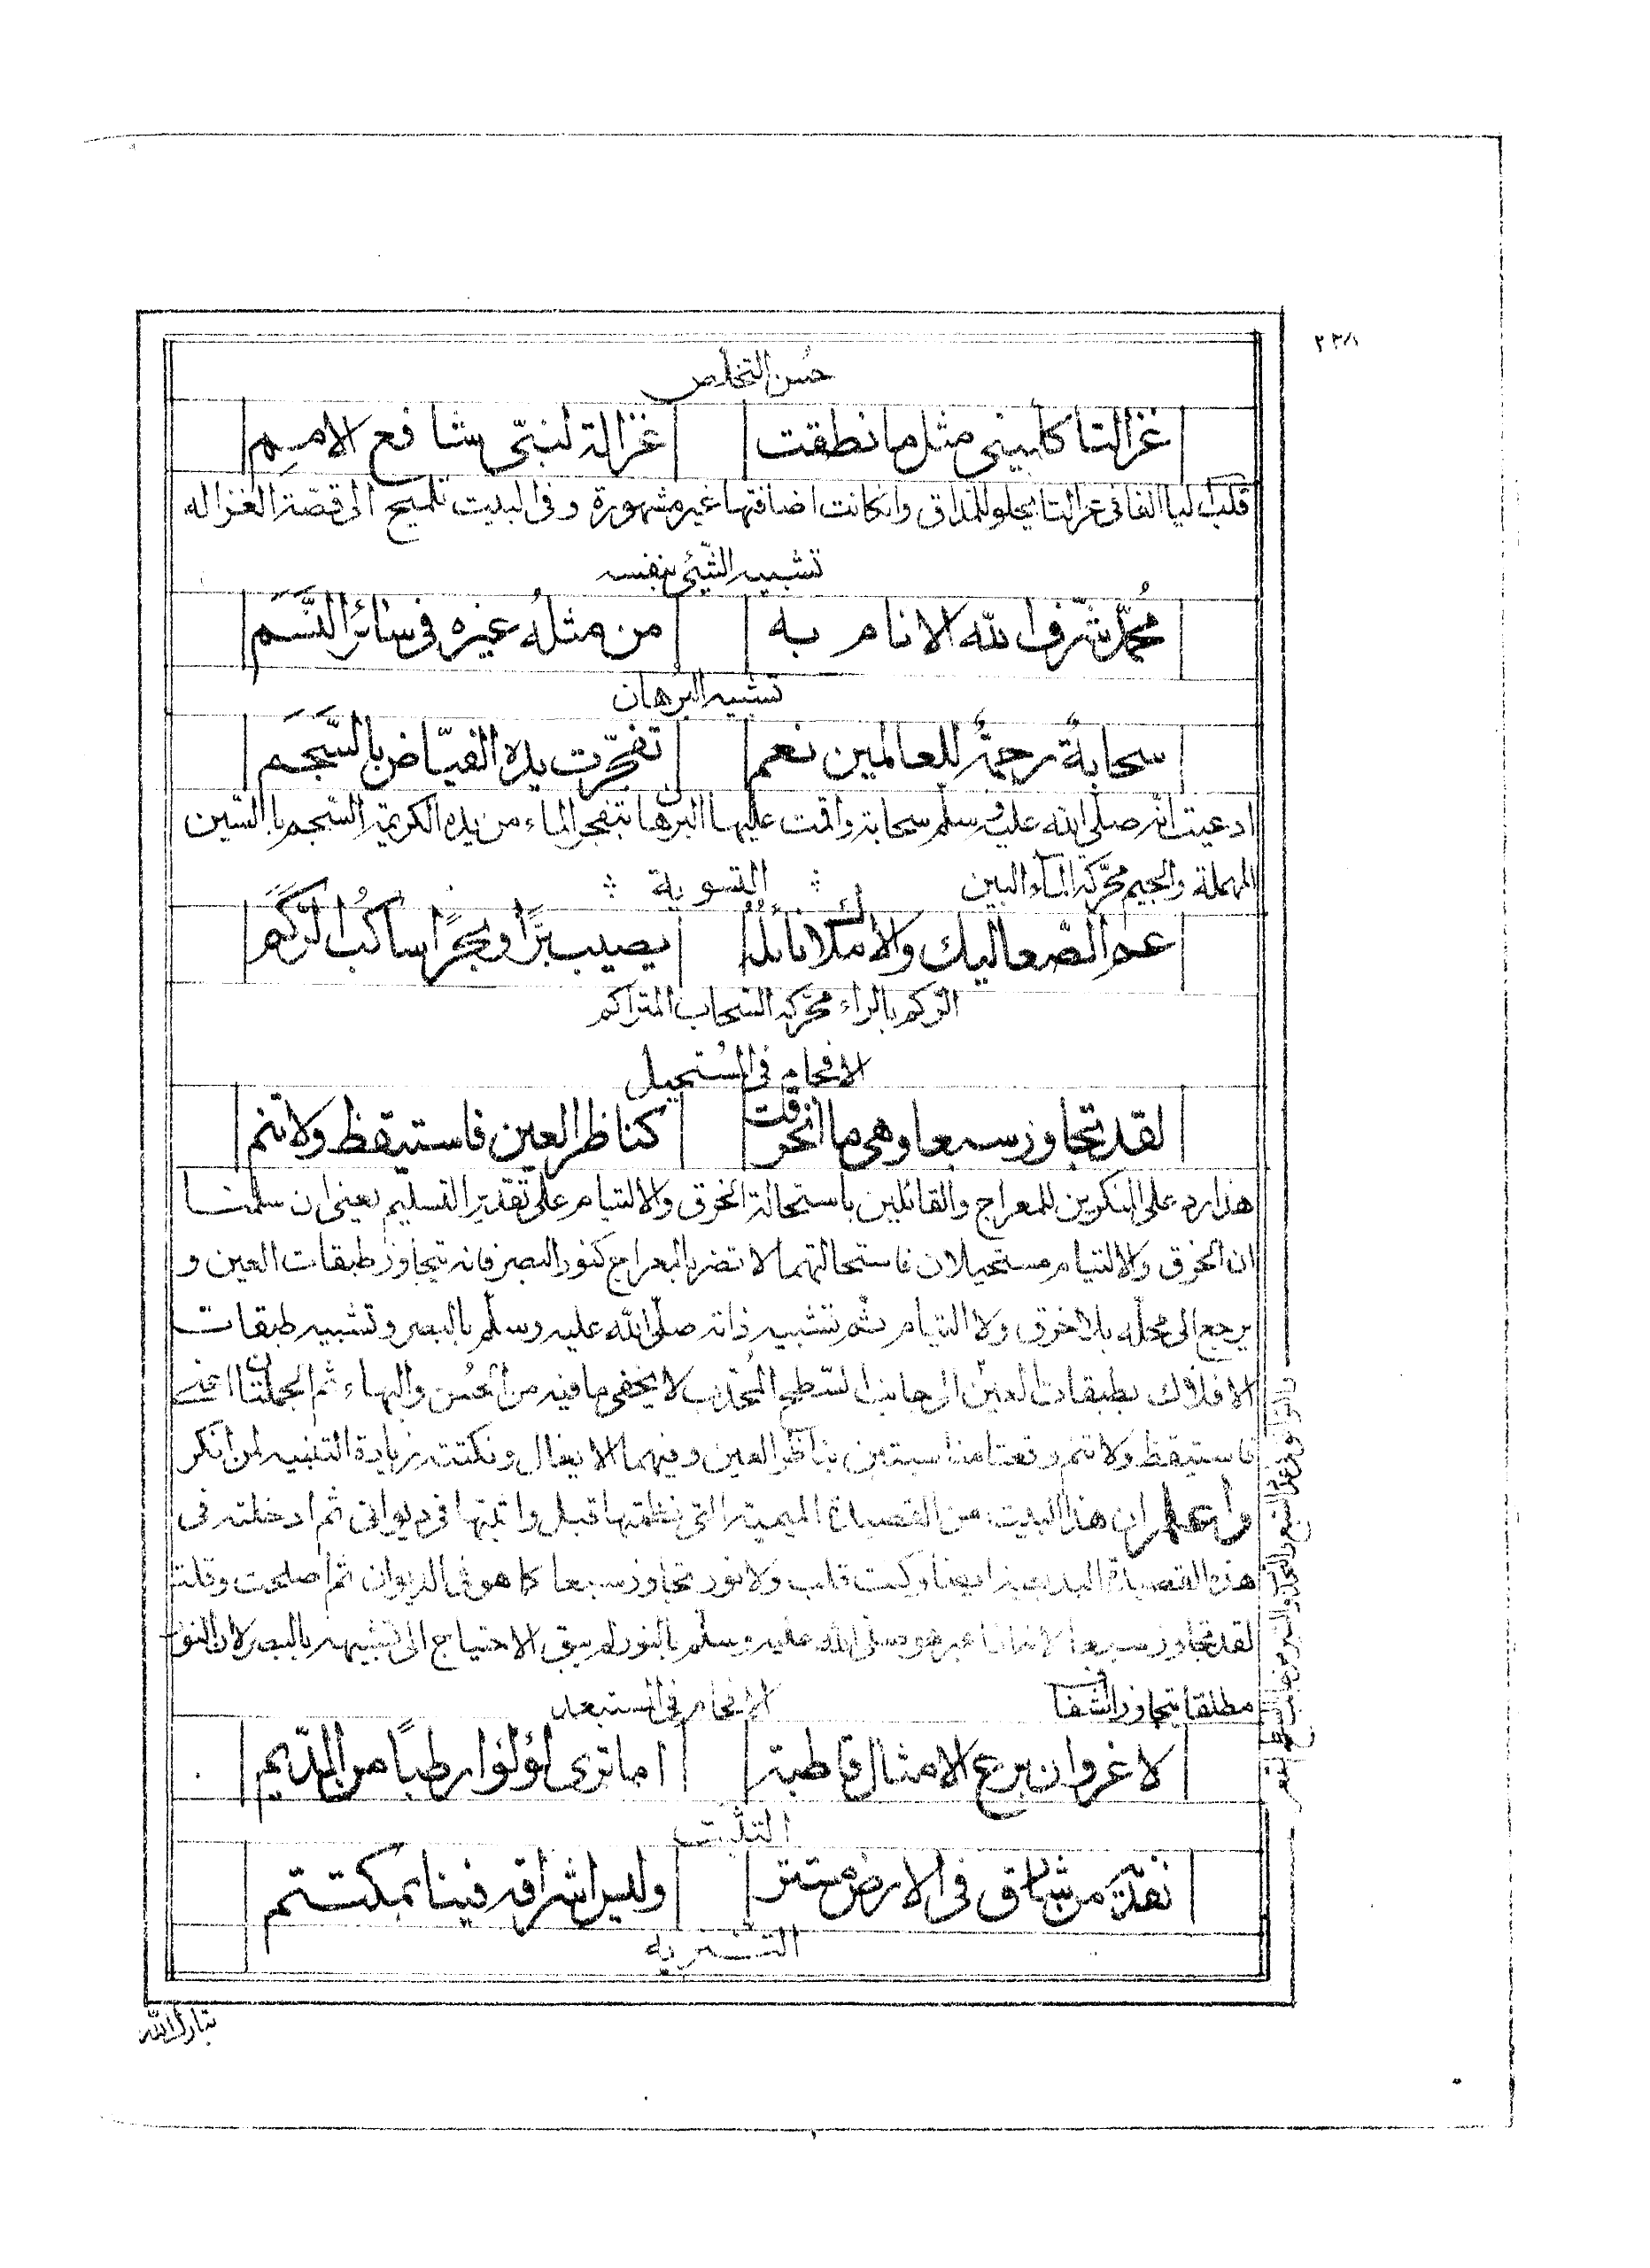 حُسن التخلّص
غزالتا كلّميني مثل ما نطقت غزالة لنبيّ شافع الامم
قلب اليا الفا في غزالتا يحلو للمذاق وان كانت اضافتها غير مشهورة وفي البيت تلميح الى قصّة الغزاله
تشبيه الشيئ بنفسه
مُحمّد شرّف الله الانام به من مثلُه غيره في سائر النَّسَم
تشبيه البرهان
سحابةٌ رحمةٌ للعالمين نعم تفجّرت يده الفيّاض بالسَّجَم
ادعيت انه صلّى الله عليه وسلّم سحابة واقمت عليها البرهان بتفجر الماء من يده الكريمة السّجم بالسّين
المهملة والجيم محرّكة الماء البين
التسوية
عم الصّعاليك والاملاك نائلُهُ يصيب برًّا وبحرًا ساكبُ الرَّكَم
الرّكم بالراء محرّكة السّحاب المتراكم
الافحام في المُستحيل
لقد تجاوز سبعا وهي ما انخرقت كناظر العين فاستيقظ ولا تنم
هذا رد على المنكرين للمعراج والقائلين باستحالة الخرق والالتيام على تقدير التسليم يعني ان سلمنا
ان الخرق والالتيام مستحيلان فاستحالتهما لا تضر بالمعراج كنور البصر فانه يتجاوز طبقات العين و
يرجع الى محلّه بلا خرق ولا التيام ثم تشبيه ذاته صلّى الله عليه وسلّم بالبصر وتشبيه طبقات
الافلاك بطبقات العين الى جانب السّطح المُحدّب لا يخفى ما فيه من الحُسن والبهاء ثم الجملتان اعني
فاستيقظ ولا تنم وقعتا مناسبتين بناظر العين وفيهما الايغال ونكتته زيادة التنبيه لمن انكر
واعلم ان هذا البيت من القصيدة الميمية التي نظمتها قبل واثبتها في ديواني ثم ادخلته في
هذه القصيدة البديعية ايضا وكنت قلت ولا نور تجاوز سبعا كما هو في الديوان ثم اصلحت وقلت
لقد تجاوز سبعا لانه اذا عبر هو صلى الله عليه وسلّم بالنور لم يبق الاحتياج الى تشبيهه بالبصر لان النور
مطلقا يتجاوز الشفاف الافحام في المستبعد
لا غروان برع الامثال قاطبة اما ترى لؤلؤا رطبًا من الديم
التلبّت
نفديه من شارق في الارض مستتر وليس اشراقه فينا بمكتتم
التنزيه
تبارك الله